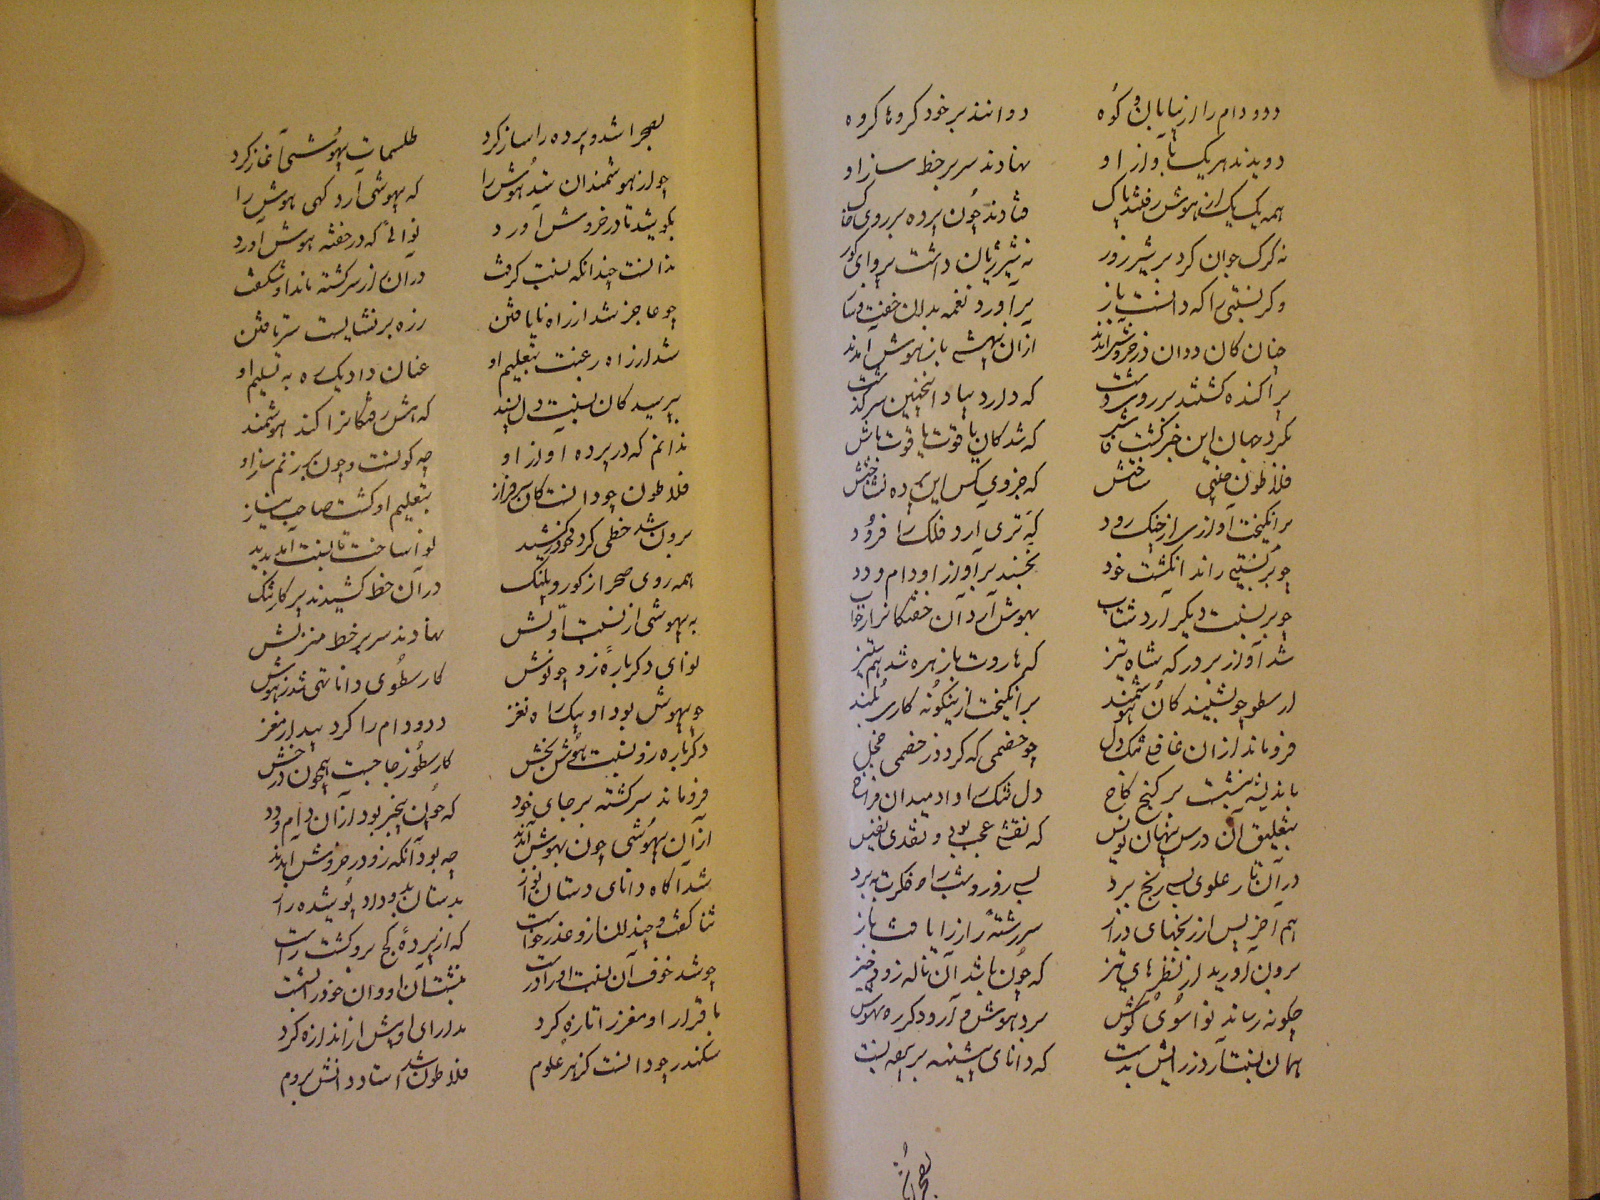 دد و دام را از بیابان و کوه دوانند بر خود کروها کروه
دویدند هریک باواز او نهادند سر بر خط ساز او
همه یک یک از هوش رفتند پاک فتادند چون مرده بر روی خاک
نه کرک جوان کرد بر میش زور نه شیر ژیان داشت پروای کور
دکر نسبتی را که دانست باز براورد نغمه بدان
چنان کان ددان در خروش امدند ازان بیهشی باز هوش امدند
پراکنده کشتند بر روی دشت که دارد بیاد اینچنین سرکذشت
بکرد جهان این خبر کشت فاش که شد کان یاقوت یاقوت پاش
فلاطون چنین ساختش که جز وی کس این پرده نشناختش
برانکیخت اواز از خنک رود که تری ارد فلک را فرود
چو بر نسبتی راند انکشت خود بخسبند بر اواز او دام و دد
چو بر نسبت دیکر ارد شتاب بهوش ارد آن خفتکانرا ز خواب
شد اواز بر در که شاه تیز که هاروت با زهره شد هم ستیز
ارسطو چو بشنید کان هوشمند برانکیخت ازینکونه کاری بلند
فرو ماند ازان غافلی تنک دل چو خصمی که کردد ز خصمی خجل
باندیشه بنشست بر کنج کاخ دل تنک را داد میدان فراخ
بتعلیق آن درس پنهان نویس که نقشی عجب بود و نقدی نفیس
دران کار علوی بسی رنج برد بسی روز و شب راه فکرت سپرد
هم اخر پس از رنجهای دراز سر رشته راز را یافت باز
برون آورید از نظرهای تیز که چون باشد آن ناله رود خیز
چکونه رساند نوا سوی کوش برد هوش و آرد دکرره بهوش
همان نسبت آرد ز رایش بدست که دانای پیشینه بر بست
بصحرا شد
بصحرا شد و پرده را ساز کرد طلسمات بیهوشی آغاز کرد
چو از هوشمندان ستد هوش را که بیهوشی آرد کهی هوش را
بکوشید تا در خروش آورد نوائی که در خفته هوش آورد
ندانست چندانکه نسبت کرفت دران از سر کشته ماند او شکفت
چو عاجز شد از راه نایافتن ز ره بر نشایست سر تافتن
شد از راه رغبت بتعلیم او عنان داد یک ره به تسلیم او
بپرسید کان نسبت دل پسند که هش رفتکانرا کند هوشمند
ندانم که در پرده آواز او چه کونست و چون بر زنم ساز او
فلاطون چو دانست کان سرفراز بتعلیم او کشت صاحب نیاز
برون شد خطی کرد خود کشید نوا ساخت تا نسبت آمد پدید
همه روی صحرا ز کور و پلنک دران خط کشیدند پرکار تنک
به بیهوشی از نسبت اولش نهادند سر بر خط مندلش
نوای دکر باره زد چو نوش که ارسطوی دانا تهی شد ز هوش
چو بیهوش بود او بیک راه نغز دد و دام را کرد بیدار مغز
دکر باره زد نسبت هوش بخش که ارسطو ز جا جست همچون درخش
فرو ماند سرکشته بر جای خود که چون بیخبر بود ازان دام و دد
ازان بیهوشی چون بهوش آمدند چه بود آنکه زو در خروش آمدند
شد آکاه دانای دستان نواز بدستان بدو داد پوشیده راز
ثنا کفت و چندان ازو عذر خواست که آن پرده کج برو کشت راست
چو شد حرف آن نسبت او را درست نبشت آن او وان خود را بشست
باقرار او مغز را تازه کرد مدارای او بیش از اندازه کرد
سکندر چو دانست کز هر علوم فلاطون شد استاد دانش بروم